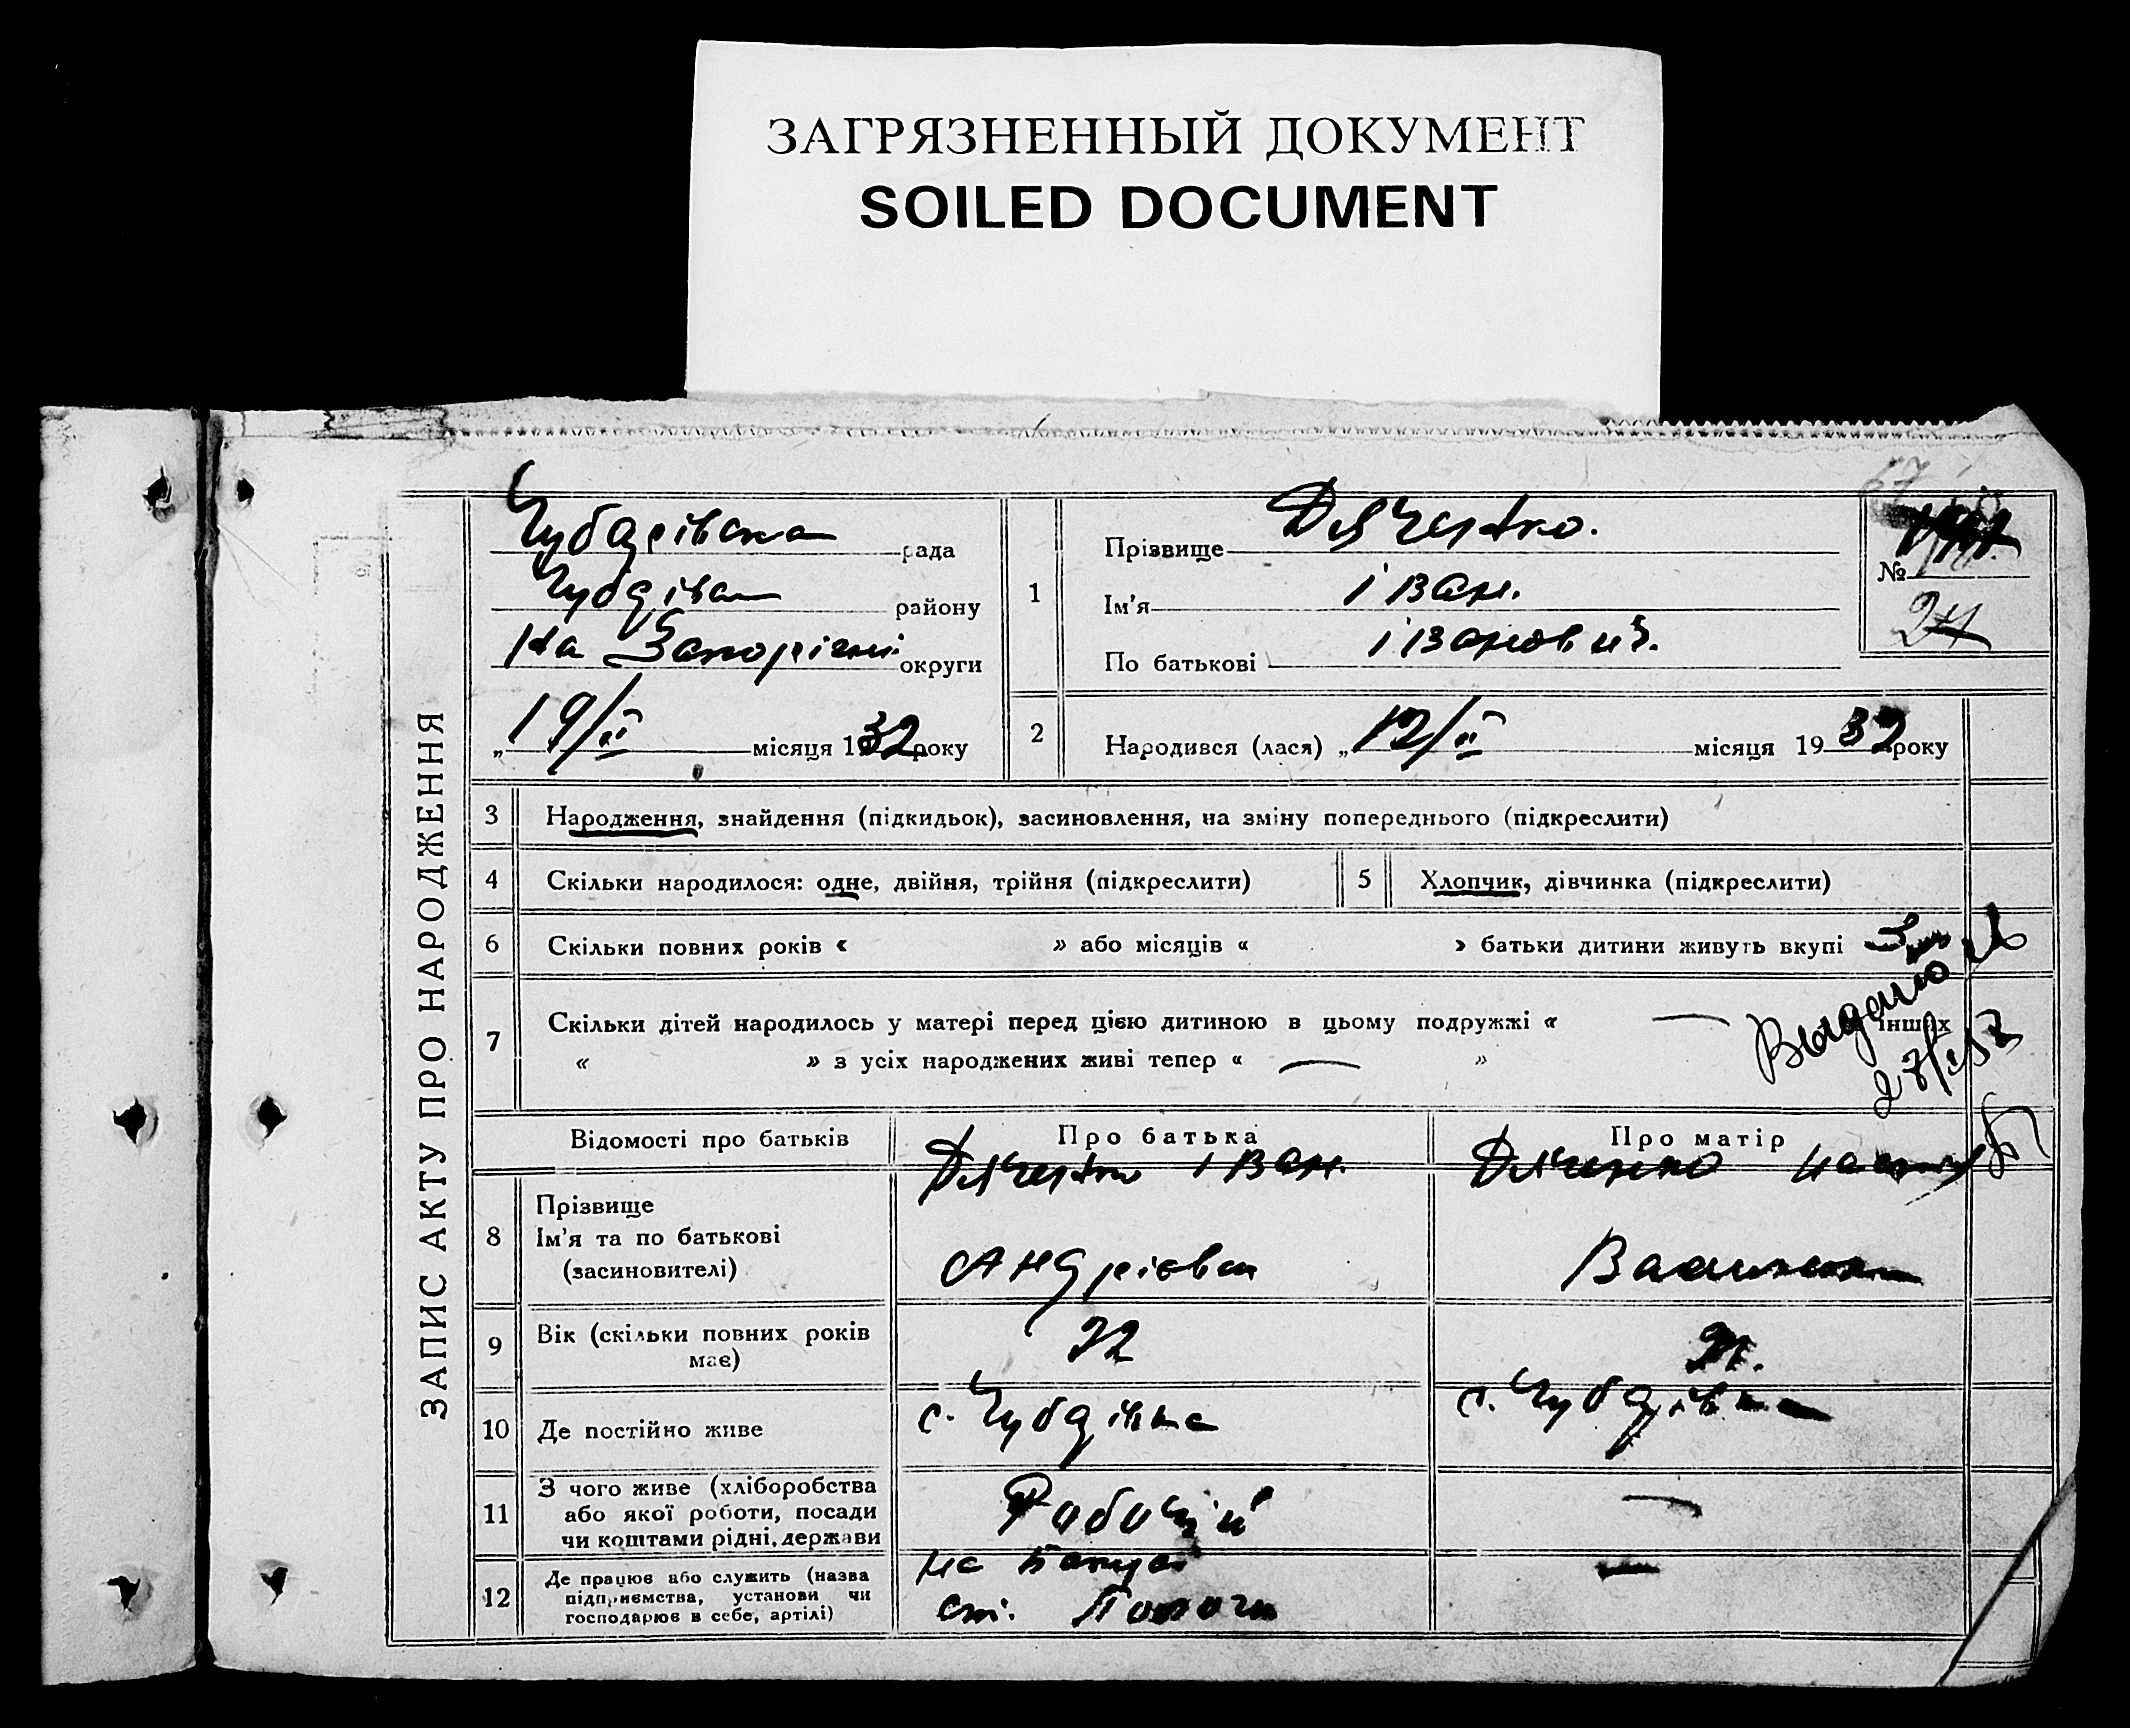 ЗАГРЯЗНЕННЫЙ ДОКУМЕНТ
SOILED DOCUMENT
ЗАПИС АКТУ ПРО НАРОДЖЕННЯ
Чубарівська рада
району
На Запоріжжі округи
„ 19/II місяця 1932 року
1
Прізвище Дяченко.
Ім'я іван.
По батькові іванович.
67
№
24
2
Народився (лася) „ 12/II місяця 1932 року
3 Народження, знайдення (підкидьок), засиновлення, на зміну попереднього (підкреслити)
4 Скільки народилося: одне, двійня, трійня (підкреслити)
5 Хлопчик, дівчинка (підкреслити)
6 Скільки повних років « » або місяців « » батьки дитини живуть вкупі
7 Скільки дітей народилось у матері перед цією дитиною в цьому подружжі « — інших
« » з усіх народжених живі тепер « — »
Выдано
Відомості про батьків
Про батька
Про матір
8 Прізвище
Ім'я та по батькові
(засиновителі)
Дяченко іван
Андрієвич
Дяченко
9 Вік (скільки повних років
має)
10 Де постійно живе
с.
с.
11 З чого живе (хліборобства
або якої роботи, посади
чи коштами рідні, держави
Рабочий
—
12 Де працює або служить (назва
підприємства, установи чи
господарює в себе, артілі)
ст. Пологи
—